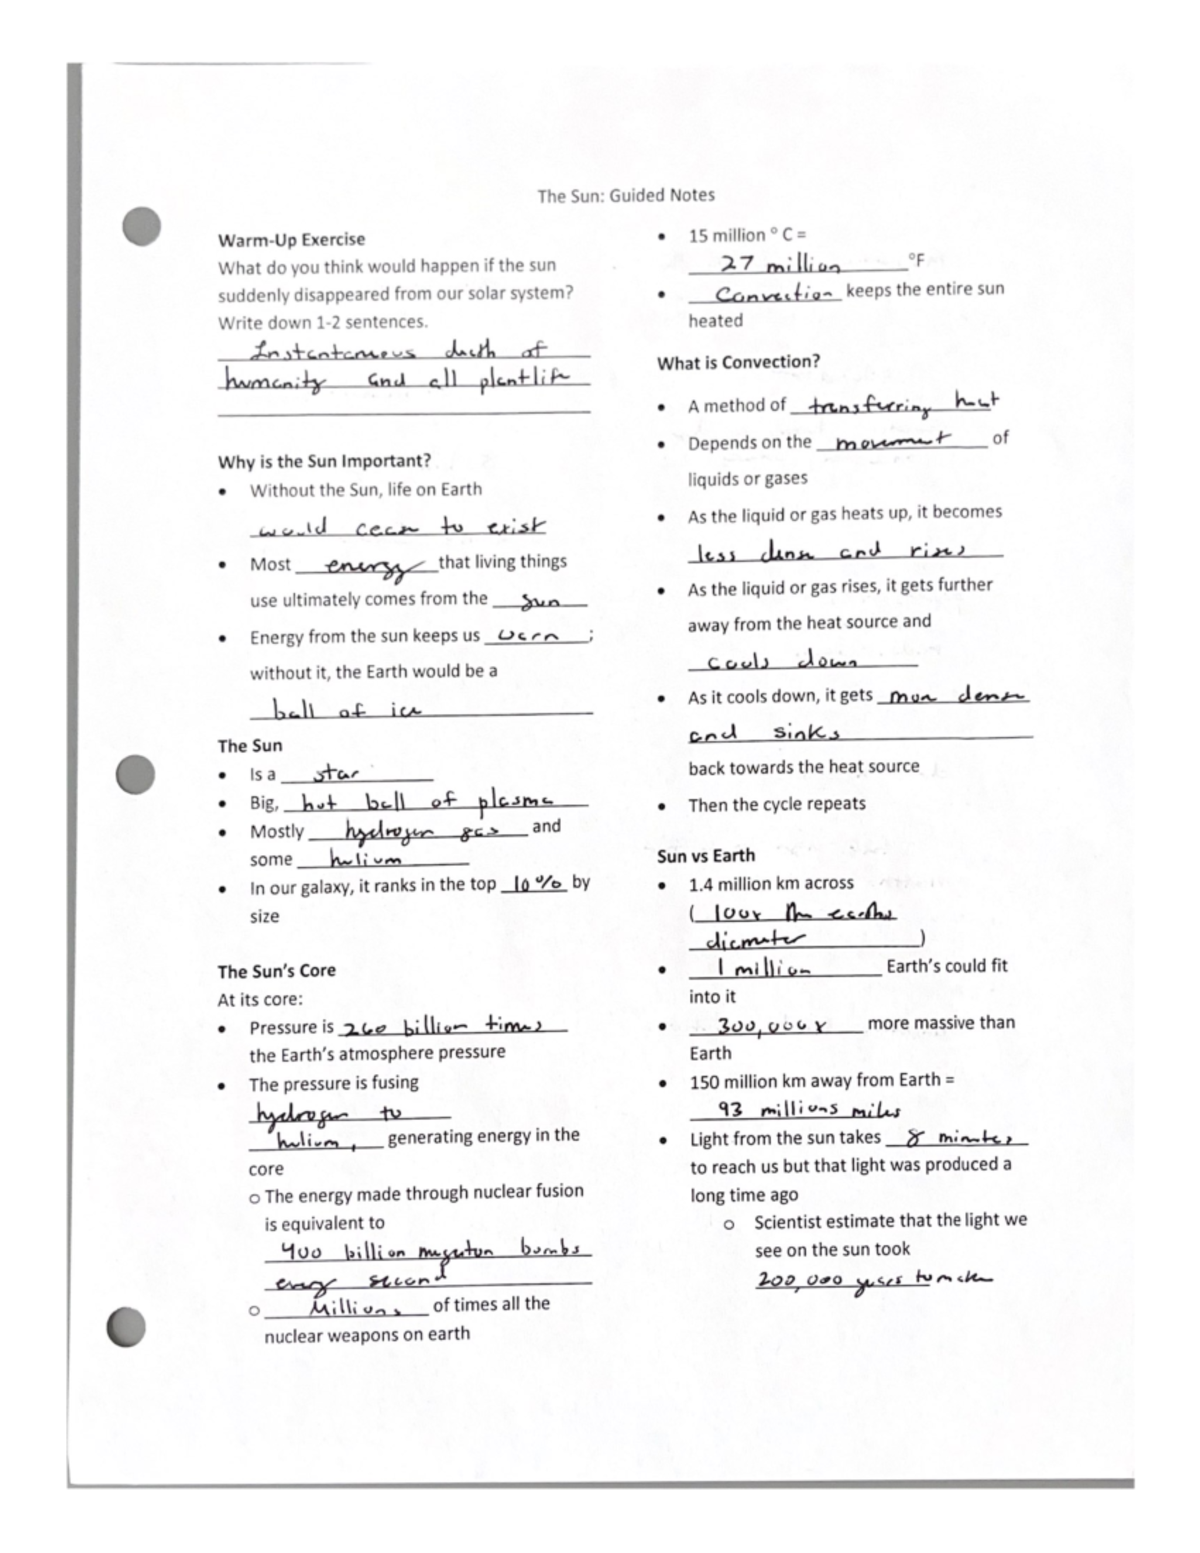 The Sun: Guided Notes
Warm-Up Exercise
What do you think would happen if the sun
suddenly disappeared from our solar system?
Write down 1-2 sentences.
Instantaneous death of
humanity and all plantlife
Why is the Sun Important?
• Without the Sun, life on Earth
would cease to exist
• Most energy that living things
use ultimately comes from the sun
• Energy from the sun keeps us warm;
without it, the Earth would be a
ball of ice
The Sun
• Is a star
• Big, hot ball of plasma
• Mostly hydrogen gas and
some helium
• In our galaxy, it ranks in the top 10% by
size
The Sun's Core
At its core:
• Pressure is 260 billion times
the Earth's atmosphere pressure
• The pressure is fusing
hydrogen to
helium, generating energy in the
core
o The energy made through nuclear fusion
is equivalent to
400 billion megaton bombs
every second
o Millions of times all the
nuclear weapons on earth
• 15 million ° C =
27 million °F
• Convection keeps the entire sun
heated
What is Convection?
• A method of transferring heat
• Depends on the movement of
liquids or gases
• As the liquid or gas heats up, it becomes
less dense and rises
• As the liquid or gas rises, it gets further
away from the heat source and
cools down
• As it cools down, it gets more dense
and sinks
back towards the heat source
• Then the cycle repeats
Sun vs Earth
• 1.4 million km across
( 100x the earths
diameter )
• 1 million Earth's could fit
into it
• 300,000x more massive than
Earth
• 150 million km away from Earth =
93 millions miles
• Light from the sun takes 8 minutes
to reach us but that light was produced a
long time ago
o Scientist estimate that the light we
see on the sun took
200,000 years to make